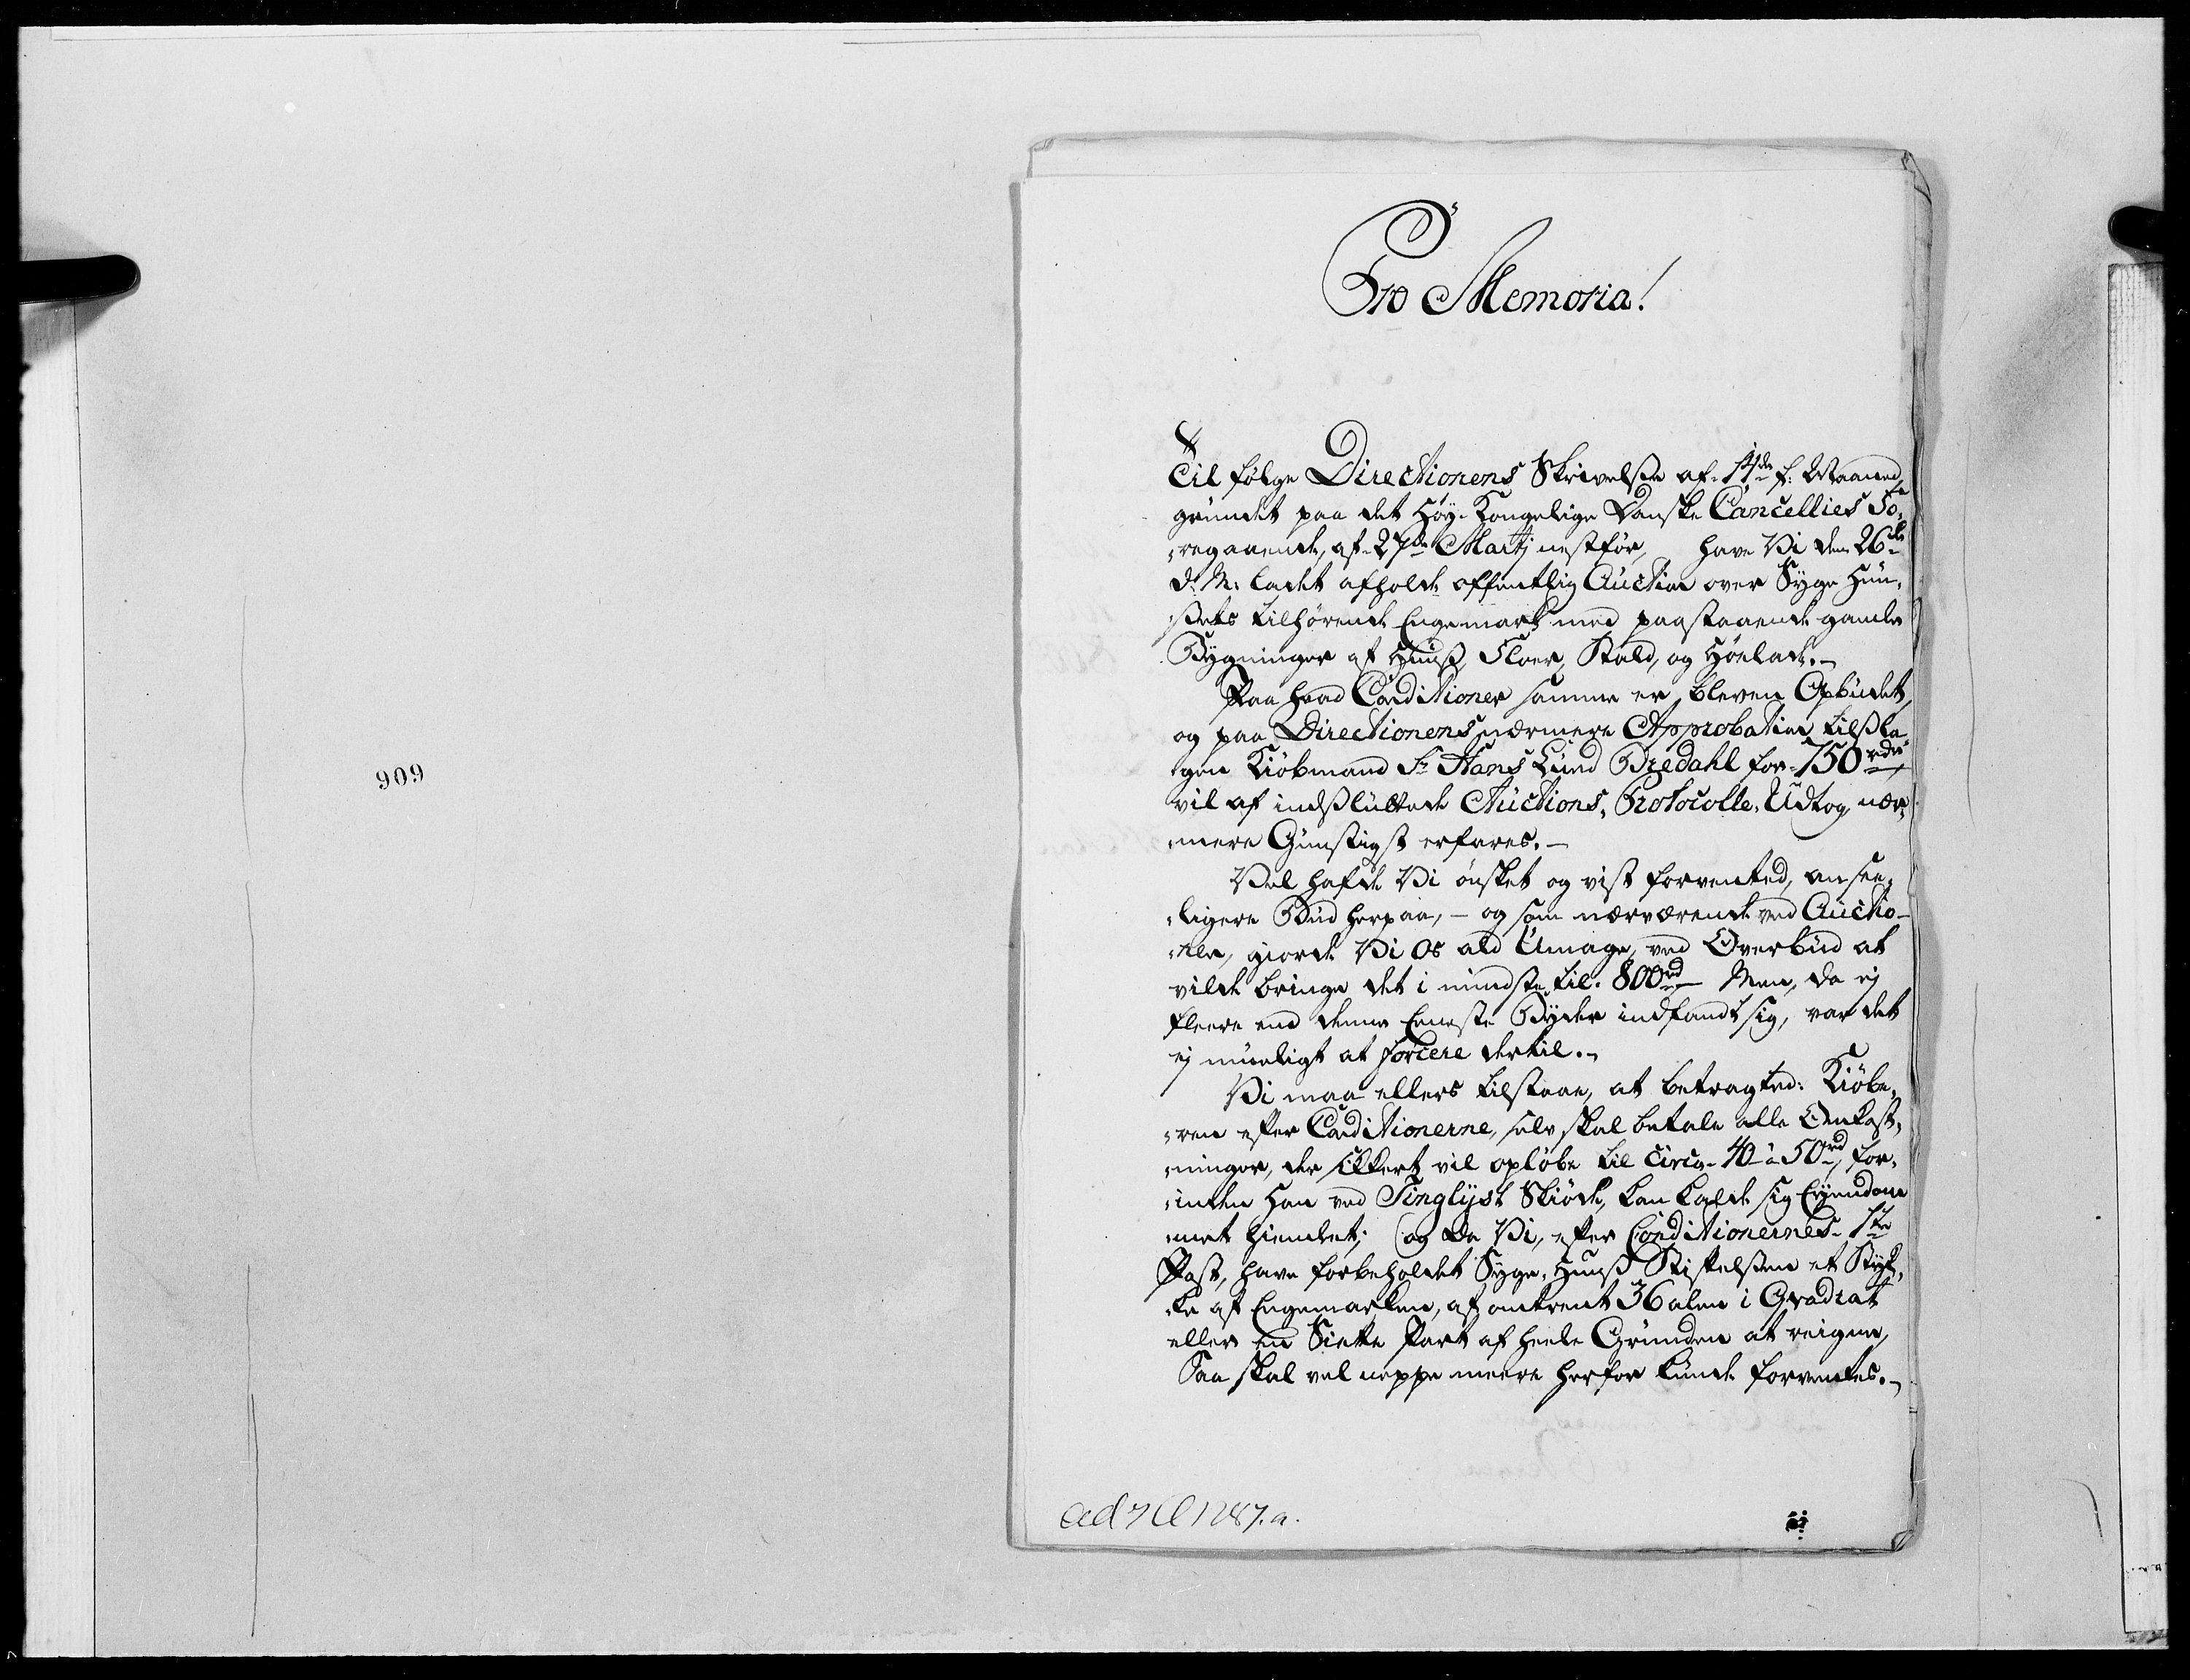 Pro Memoria!
Til følge Directionens Skrivelse af 14de f: Maaned
grundet paa det Høy-Kongelige Danske Cancellies Fo-
regaaende, af 27de Martj nestfør, have Vi den 26de
d: M: ladet afholde offentlig Auction over Syge Huu-
sets tilhørende Engemark med paastaaende gamle
Bygninger af Huuß, Floer, Stald, og Høelade.-
Paa hvad Conditioner samme er bleven Opbudet,
og paa Directionens nærmere Approbation tilßla-
gen Kiöbmand Sr Hans Lund Bredahl for 750 rdr
vil af indßluttede Auctions-Protocolle-Udtog nær-
mere Gunstigst erfares.-
Vel hafde Vi ønsket og vist forvented, ansee-
ligere Bud herpaa, - og som nærværende ved Auctio-
nen, giorde Vi Os ald Umage, ved Overbud at
vilde bringe det i mindste til 800 rd Men, da ej
fleere end denne Eeneste Byder indfandt sig, var det
ej mueligt at forcere dertil.-
Vi maa ellers tilstaae, at betragted: Kiöbe-
ren efter Conditionerne, selv skal betale alle Omkost-
ninger, der sikkert vil opløbe til circa 40 à 50 rd, for-
inden Han ved Tinglyst Skiöde, kan kalde sig Eyendom-
met hiemlet; og da Vi, efter Conditionernes 1te
Post, have forbeholdet Syge-Huuß Stiftelsen et Styk-
ke af Engemarken, af omtrent 36 alen i Qvadrat
eller en Siette Part af heele Grunden at reigne,
Saa skal vel neppe meere herfor kunde forventes.-
ad 7 1287.a.
909